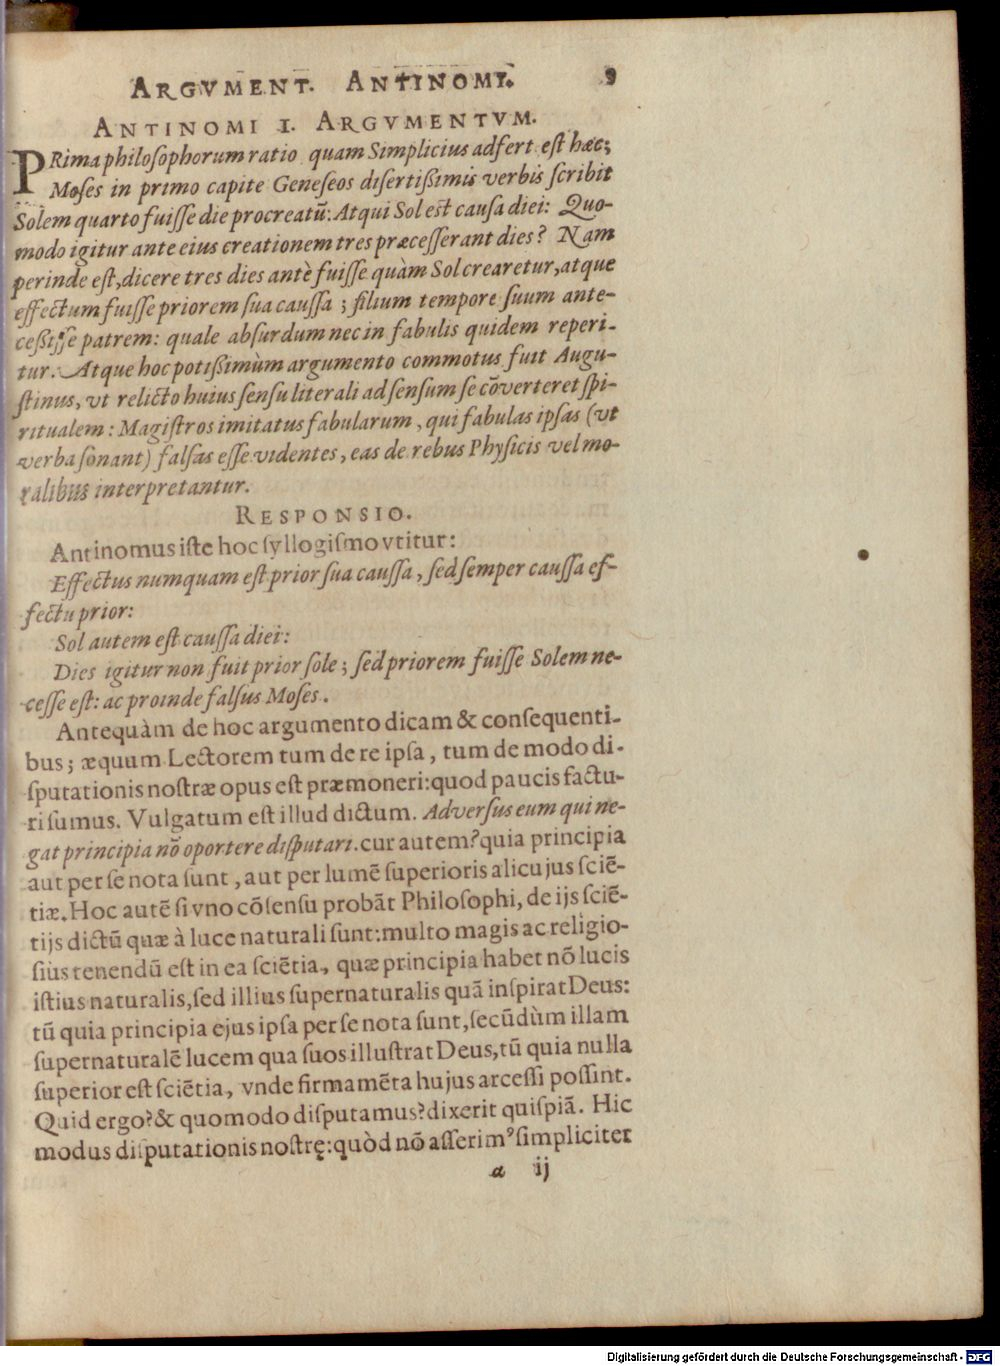 ARGVMENT. ANTINOMI. 9
ANTINOMI I. ARGVMENTVM.
PRima philosophorum ratio quam Simplicius adfert est hæc;
Moses in primo capite Geneseos disertißimis verbis scribit
Solem quarto fuisse die procreatū: Atqui Sol est causa diei: Quo-
modo igitur ante eius creationem tres præcesserant dies? Nam
perinde est, dicere tres dies antè fuisse quàm Sol crearetur, atque
effectum fuisse priorem sua caussa; filium tempore suum ante-
ceßisse patrem: quale absurdum nec in fabulis quidem reperi-
tur. Atque hoc potißimùm argumento commotus fuit Augu-
stinus, vt relicto huius sensu literali ad sensum se cōverteret spi-
ritualem: Magistros imitatus fabularum, qui fabulas ipsas (vt
verba sonant) falsas esse videntes, eas de rebus Physicis vel mo-
ralibus interpretantur.
RESPONSIO.
Antinomus iste hoc syllogismo vtitur:
Effectus numquam est prior sua caussa, sed semper caussa ef-
fectu prior:
Sol autem est caussa diei:
Dies igitur non fuit prior sole; sed priorem fuisse Solem ne-
cesse est: ac proinde falsus Moses.
Antequàm de hoc argumento dicam & consequenti-
bus; æquum Lectorem tum de re ipsa, tum de modo di-
sputationis nostræ opus est præmoneri: quod paucis factu-
ri sumus. Vulgatum est illud dictum. Adversus eum qui ne-
gat principia nō oportere disputari. cur autem? quia principia
aut per se nota sunt, aut per lumē superioris alicujus sciē-
tiæ. Hoc autē si vno cōsensu probāt Philosophi, de ijs sciē-
tijs dictū quæ à luce naturali sunt: multo magis ac religio-
sius tenendū est in ea sciētia, quæ principia habet nō lucis
istius naturalis, sed illius supernaturalis quā inspirat Deus:
tū quia principia ejus ipsa per se nota sunt, secūdùm illam
supernaturalē lucem qua suos illustrat Deus, tū quia nulla
superior est sciētia, vnde firmamēta hujus arcessi possint.
Quid ergo? & quomodo disputamus? dixerit quispiā. Hic
modus disputationis nostrę: quòd nō asserimꝰ simpliciter
a ij
Digitalisierung gefördert durch die Deutsche Forschungsgemeinschaft - DFG